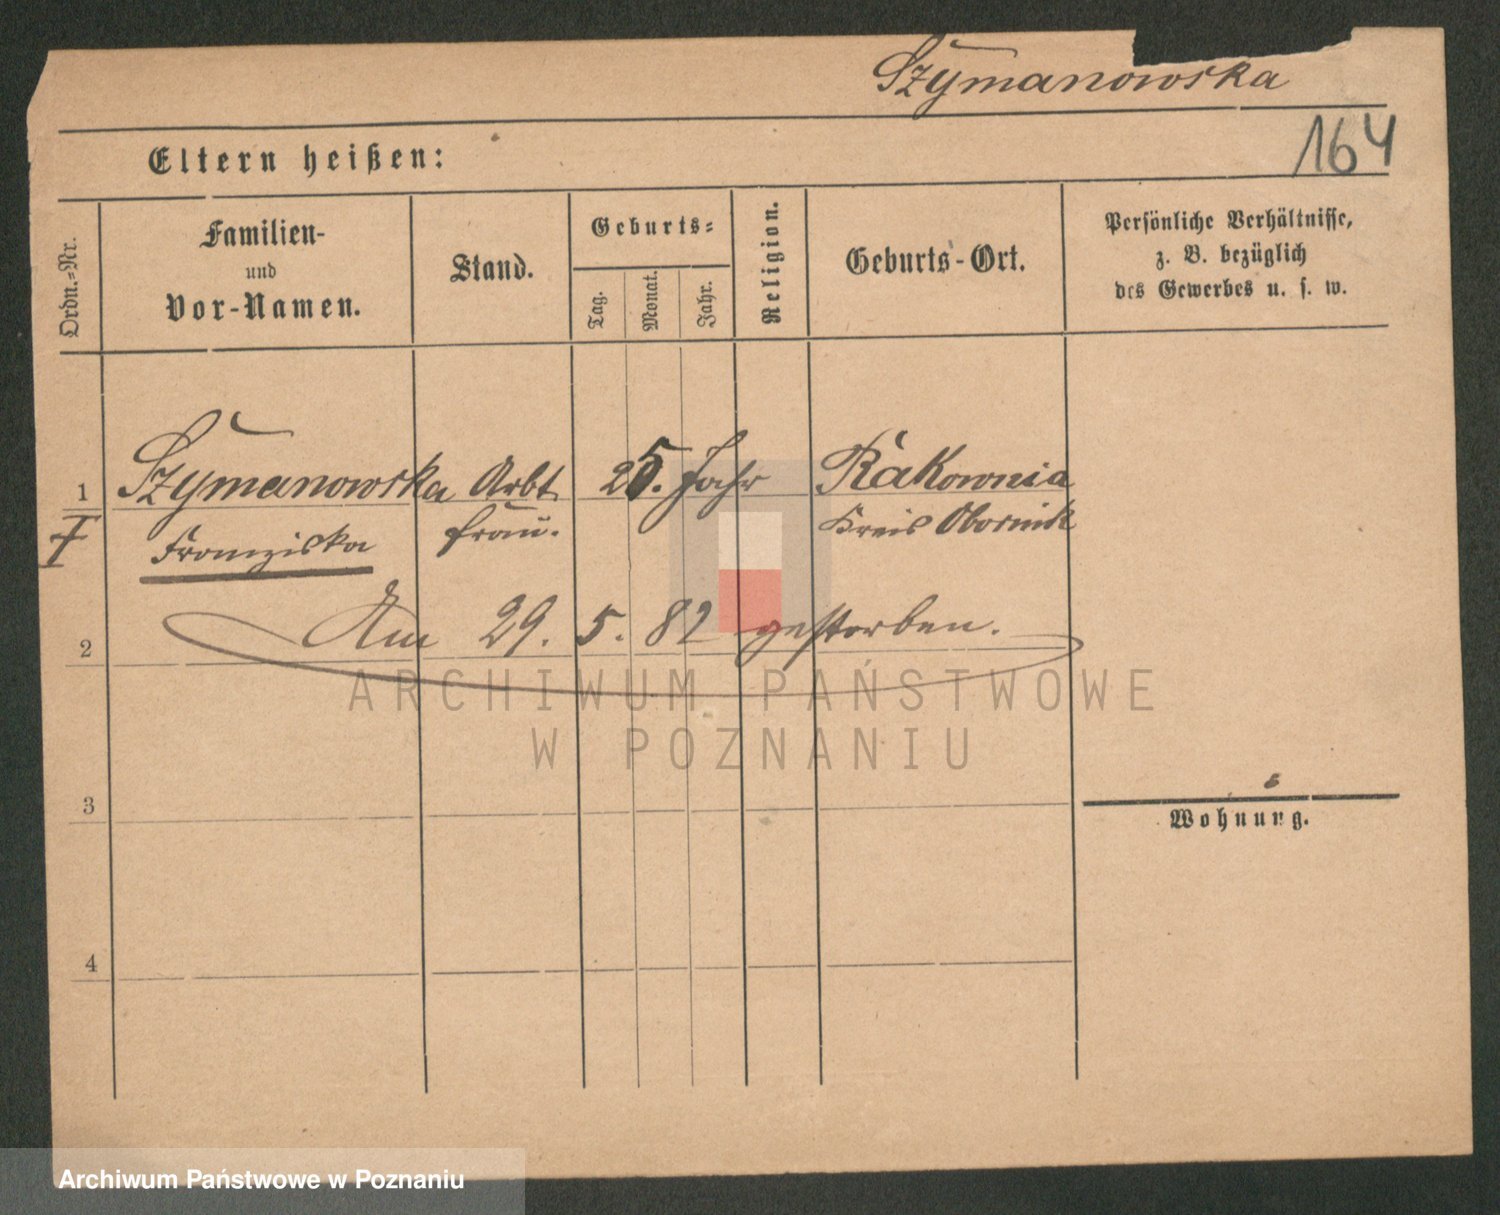 Szymanowska
164
Eltern heißen:
Ordn.-Nr.
Familien-
und
Vor-Namen.
Stand.
Geburts-
Tag.
Monat.
Jahr.
Religion.
Geburts-Ort.
Persönliche Verhältnisse,
z. B. bezüglich
des Gewerbes u. s. w.
1 Szymanowska Arbt 25. Jahr Rakownia
Franziska frau. Kreis Obornik
2 Am 29. 5. 82 gestorben.
ARCHIWUM PAŃSTWOWE
W POZNANIU
3
Wohnung.
4
Archiwum Państwowe w Poznaniu